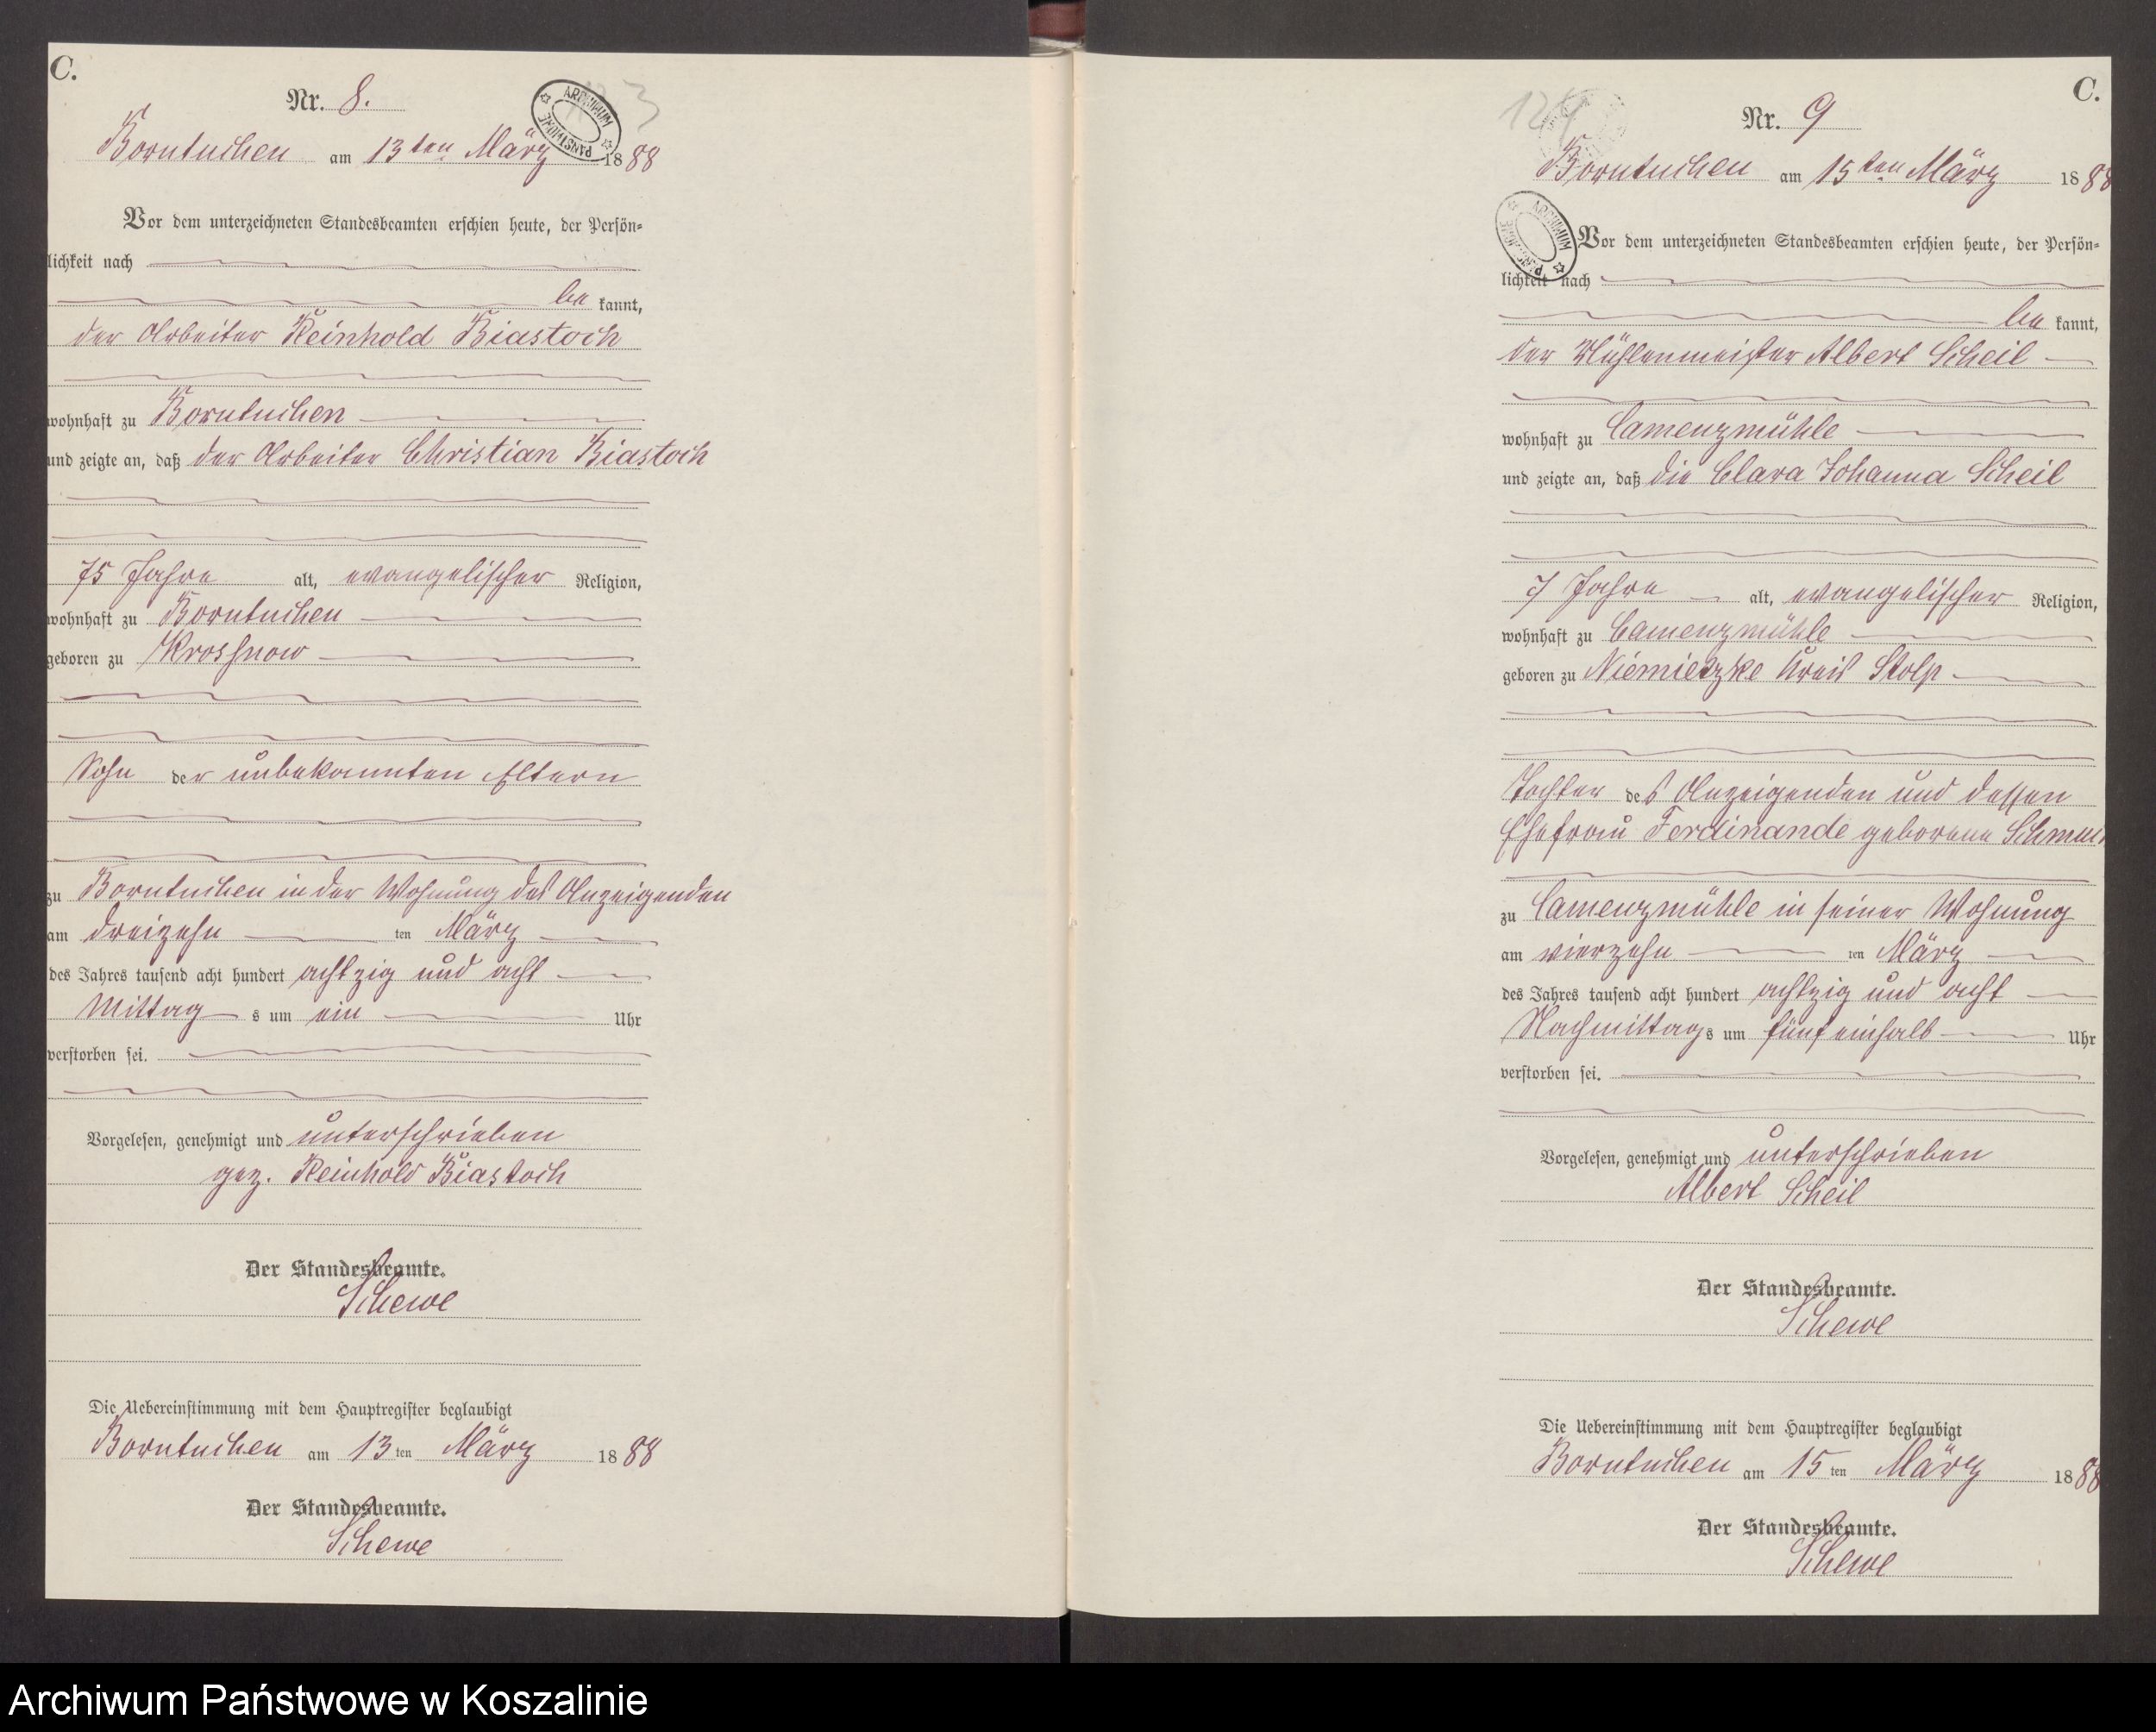 C.
Nr. 8.
ARCHIWUM PAŃSTWOWE
3
Borntuchen am 13ten März 1888
Vor dem unterzeichneten Standesbeamten erschien heute, der Persön-
lichkeit nach
be kannt,
der Arbeiter Reinhold Biastoch
wohnhaft zu Borntuchen
und zeigte an, daß der Arbeiter Christian Biastoch
75 Jahre alt, evangelischer Religion,
wohnhaft zu Borntuchen
geboren zu Krossnow
Sohn der unbekannten Eltern
zu Borntuchen in der Wohnung des Anzeigenden
am dreizehn ten März
des Jahres tausend acht hundert achtzig und acht
Mittag s um ein Uhr
verstorben sei.
Vorgelesen, genehmigt und unterschrieben
gez. Reinhold Biastoch
Der Standesbeamte.
Schewe
Die Uebereinstimmung mit dem Hauptregister beglaubigt
Borntuchen am 13 ten März 1888
Der Standesbeamte.
Schewe
C.
124
Nr. 9
Borntuchen am 15ten März 1888
ARCHIWUM
Vor dem unterzeichneten Standesbeamten erschien heute, der Persön-
lichkeit nach
be kannt,
der Mühlenmeister Albert Scheil
wohnhaft zu Camenzmühle
und zeigte an, daß die Clara Johanna Scheil
7 Jahre alt, evangelischer Religion,
wohnhaft zu Camenzmühle
geboren zu Niemietzke Kreis Stolp
Tochter des Anzeigenden und dessen
Ehefrau Ferdinande geborene
zu Camenzmühle in seiner Wohnung
am vierzehn ten März
des Jahres tausend acht hundert achtzig und acht
Nachmittags um fünf einhalb Uhr
verstorben sei.
Vorgelesen, genehmigt und unterschrieben
Albert Scheil
Der Standesbeamte.
Schewe
Die Uebereinstimmung mit dem Hauptregister beglaubigt
Borntuchen am 15 ten März 1888
Der Standesbeamte.
Schewe
Archiwum Państwowe w Koszalinie